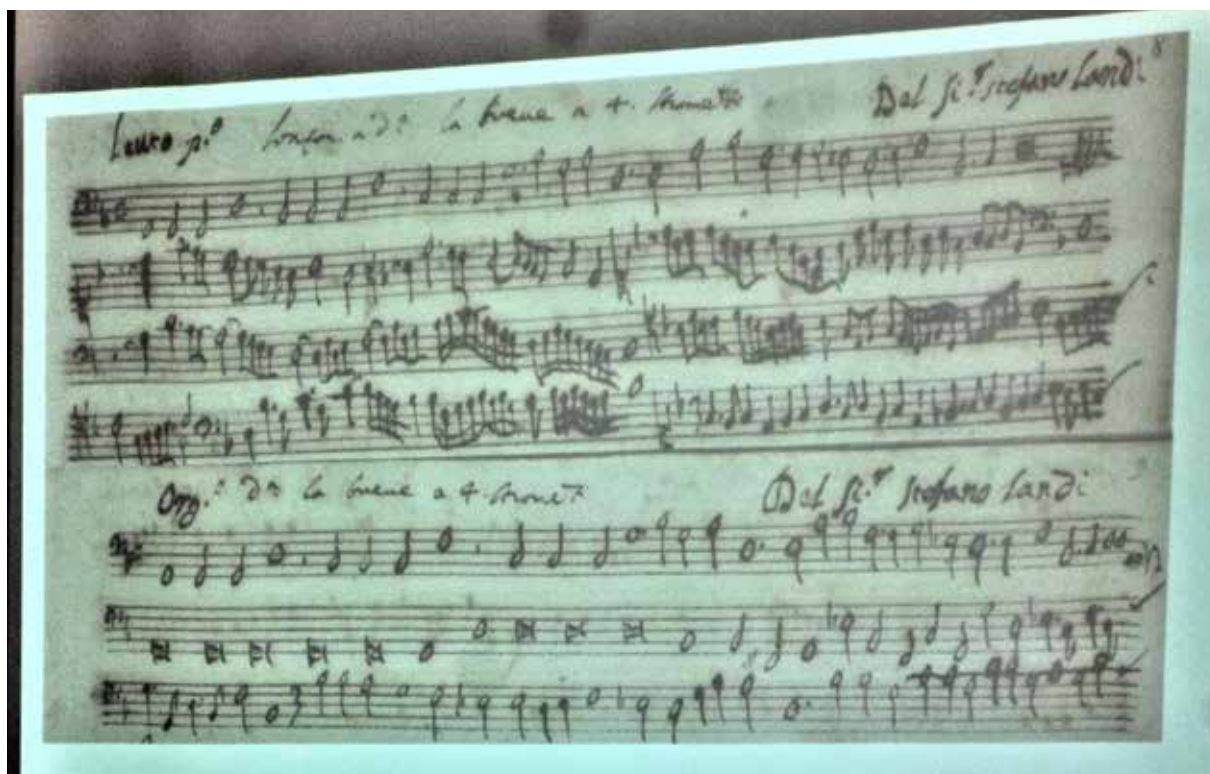 Leuto p.º Canzon d.ª la breue a 4. Del Si.ʳ stefano Landi 8
Org.º d.ª la breue a 4. Del Si.ʳ stefano Landi